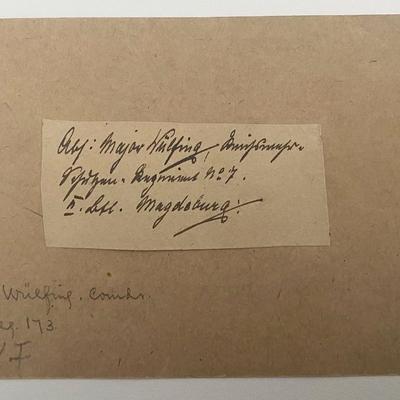 Abs: Major Wülfing, Reichswehr-
Schützen-Regiment No 7.
II. Btl. Magdeburg.
Wülfing. Comdr.
eg. 173